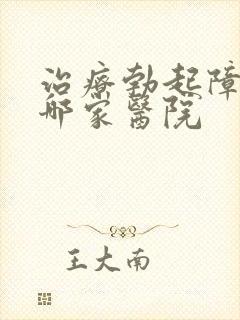 治療勃起障
哪家醫院
王大南